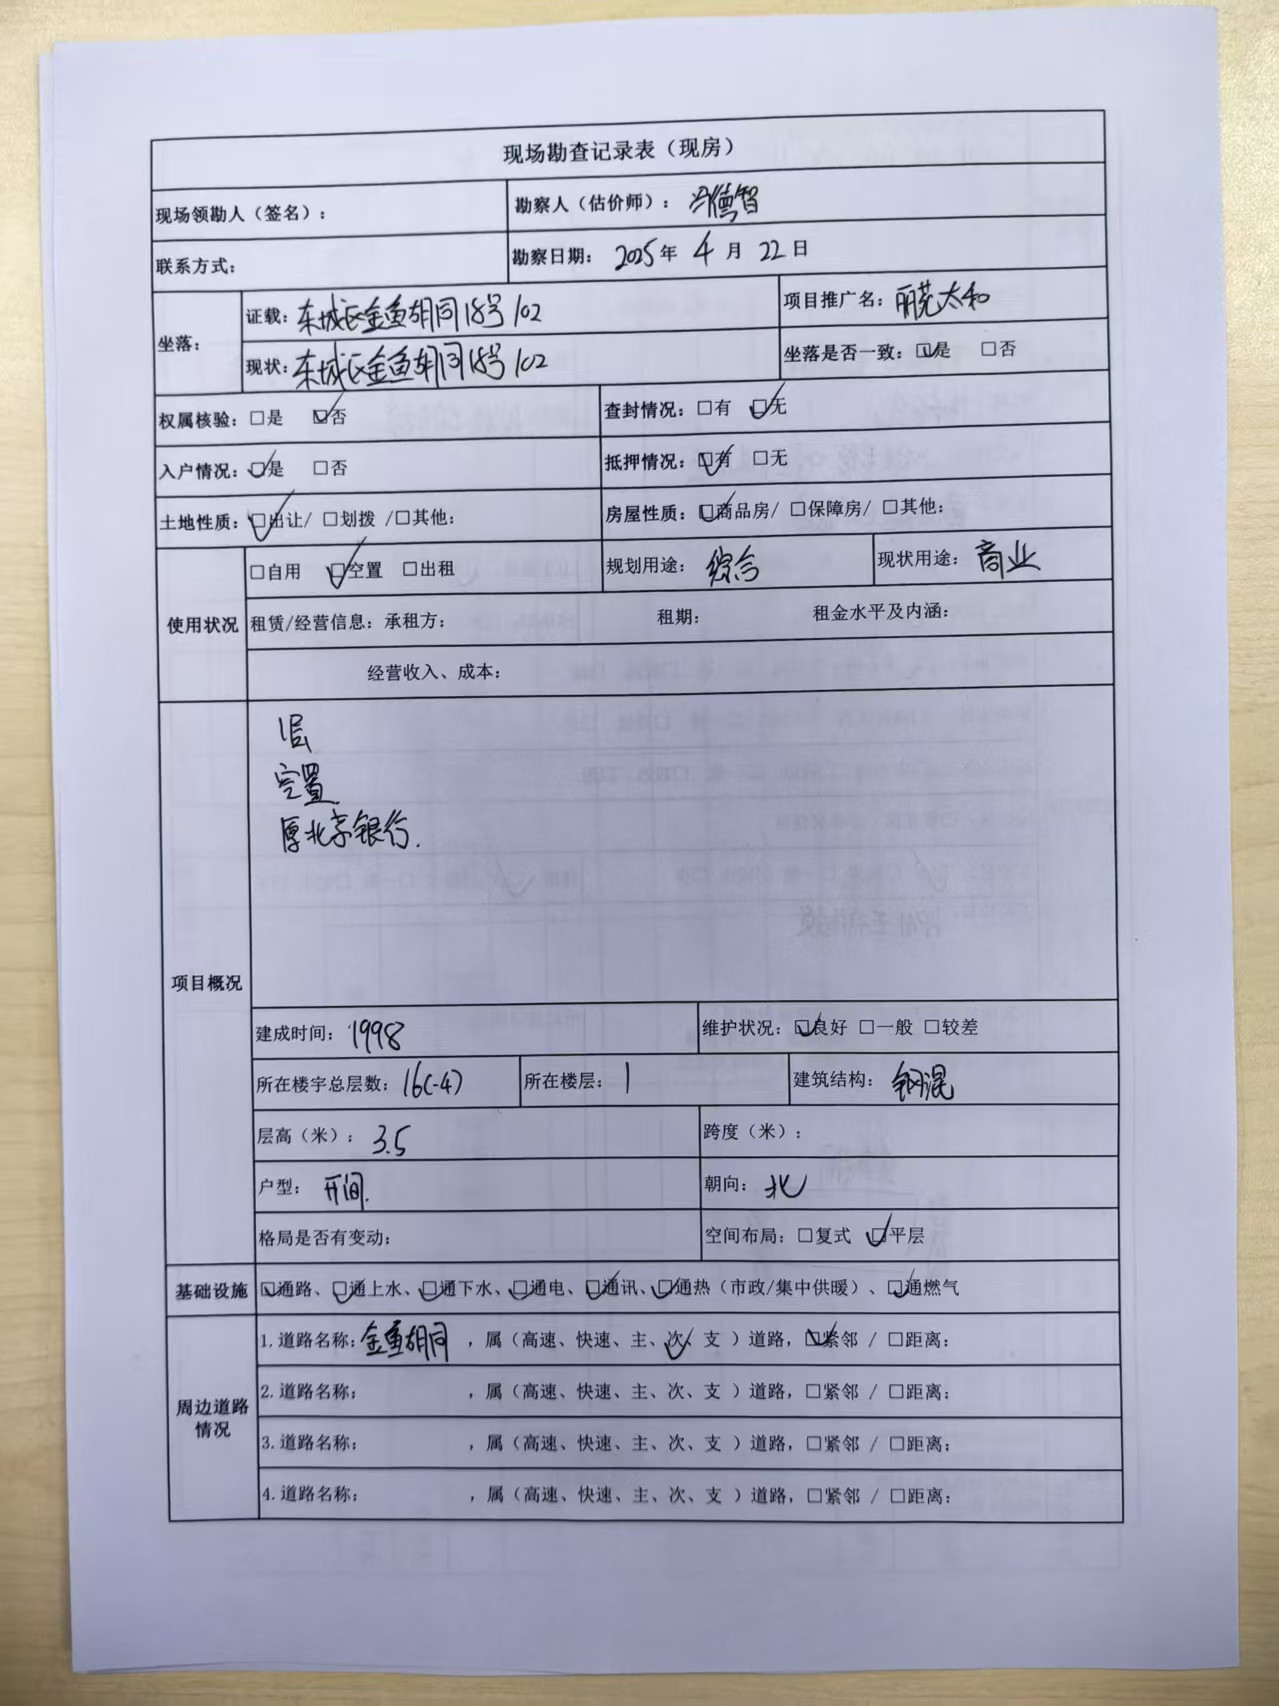 现场勘查记录表（现房）
现场领勘人（签名）： 勘察人（估价师）： 冯德智
联系方式： 勘察日期： 2025年 4 月 22 日
坐落： 证载：东城区金鱼胡同18号102 项目推广名：丽苑太和
现状：东城区金鱼胡同18号102 坐落是否一致：☑是 □否
权属核验：□是 ☑否 查封情况：□有 ☑无
入户情况：☑是 □否 抵押情况：☑有 □无
土地性质：☑出让/ □划拨 /□其他： 房屋性质：☑商品房/ □保障房/ □其他：
使用状况 □自用 ☑空置 □出租 规划用途： 综合 现状用途：商业
租赁/经营信息：承租方： 租期： 租金水平及内涵：
经营收入、成本：
项目概况
1层
空置
原北京银行.
建成时间：1998 维护状况：☑良好 □一般 □较差
所在楼宇总层数：16(-4) 所在楼层：1 建筑结构： 钢混
层高（米）： 3.5 跨度（米）：
户型： 开间. 朝向：北
格局是否有变动： 空间布局：□复式 ☑平层
基础设施 ☑通路、☑通上水、☑通下水、☑通电、☑通讯、☑通热（市政/集中供暖）、☑通燃气
周边道路情况 1.道路名称：金鱼胡同 ，属（高速、快速、主、次✓、支 ）道路，☑紧邻 / □距离：
2.道路名称： ，属（高速、快速、主、次、支 ）道路，□紧邻 / □距离：
3.道路名称： ，属（高速、快速、主、次、支 ）道路，□紧邻 / □距离：
4.道路名称： ，属（高速、快速、主、次、支 ）道路，□紧邻 / □距离：